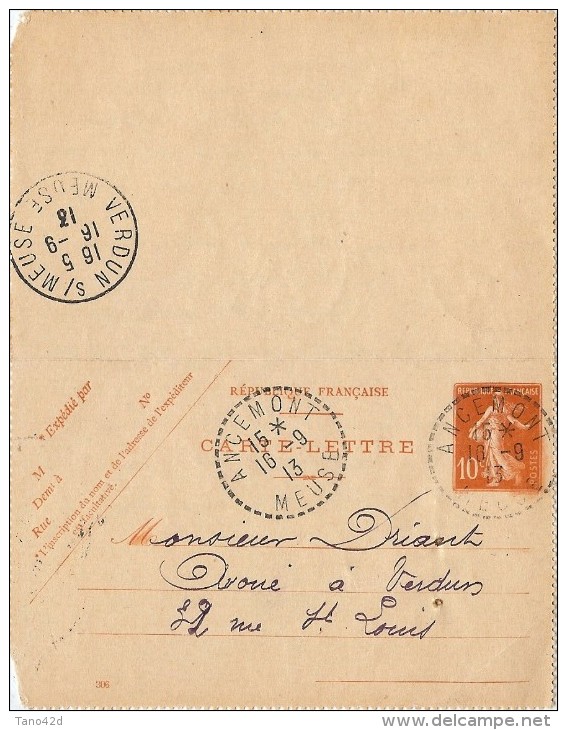 VERDUN S/ MEUSE
MEUSE
16 5
16 -9
13
* Expédié par
M
Demt à
Rue
No
* L'inscription du nom et de l'adresse de l'expéditeur
est facultative.
RÉPUBLIQUE FRANÇAISE
CARTE-LETTRE
ANCEMONT
15 *
16 - 9
13
MEUSE
REPUBLIQUE FRANÇAISE
10c
POSTES
ANCEMONT
-9
13
Monsieur Driant
Avoué à Verdun
rue St Louis
306
Tano42d
delcampe.net